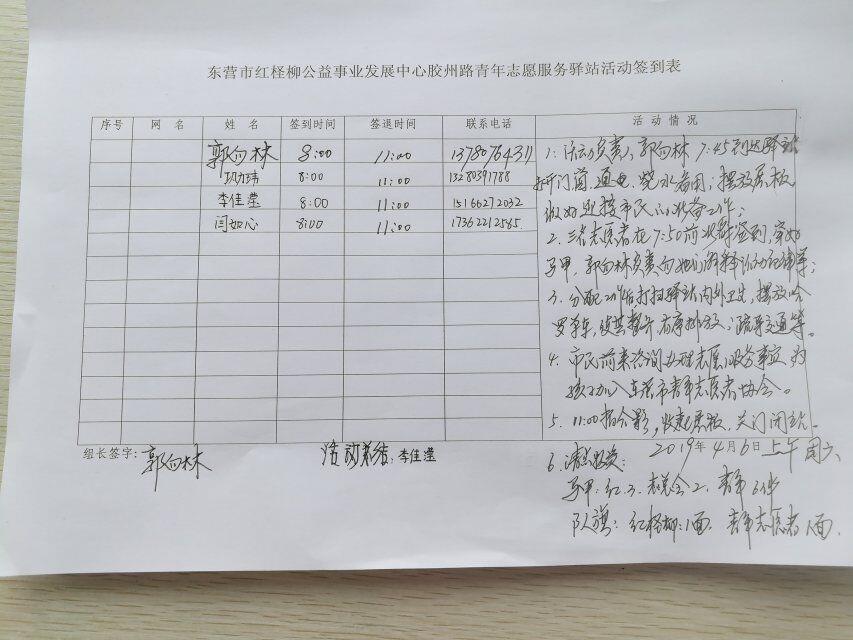 东营市红柽柳公益事业发展中心胶州路青年志愿服务驿站活动签到表
序号 网名 姓名 签到时间 签退时间 联系电话 活动情况
郭向林 8:00 11:00 13780764311
玮 8:00 11:00 13280391788
李佳滢 8:00 11:00 15166272032
闫如心 8:00 11:00 17362212585
1、活动负责人郭向林7:45到达驿站
开门窗,通电,烧水备用;摆放展板
做好迎接市民的准备工作;
2、三名志愿者在7:50前准时签到,穿好
马甲,郭向林负责向她们解释活动
3、分配工作后打扫驿站内外卫生,摆放
单车,使其整齐有序排放,疏导交通等。
4、市民前来咨询办理志愿服务事宜,为
孩子加入东营市青年志愿者协会。
5、11:00拍合影,收起展板,关门闭站。
组长签字:郭向林 活动总结:李佳滢
2019年4月6日上午周六
6、
马甲:红3、志总会2、青年6件
队旗:红柽柳:1面 青年志愿者1面.